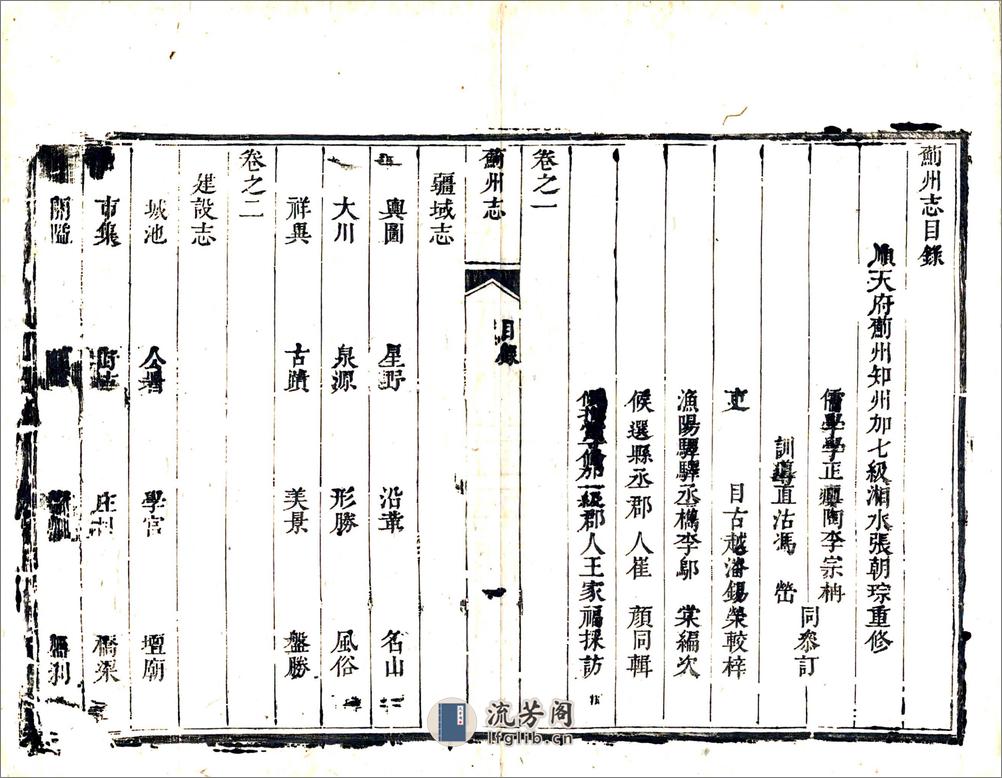 薊州志目錄
順天府薊州知州加七級湘水張朝琮重修
儒學學正 陶李宗
訓導直沽馮
同叅訂
吏目古越潘錫榮較梓
漁陽驛驛丞檇李鄔棠編次
候選縣丞郡人崔顔同輯
級郡人王家福採訪
卷之一
薊州志
目錄
一
疆域志
輿圖 星野 沿革 名山
大川 泉源 形勝 風俗
祥異 古蹟 美景 盤勝
卷之二
建設志
城池 公署 學宮 壇廟
市集 庄村 橋梁
關隘
流芳阁
lfglib.cn